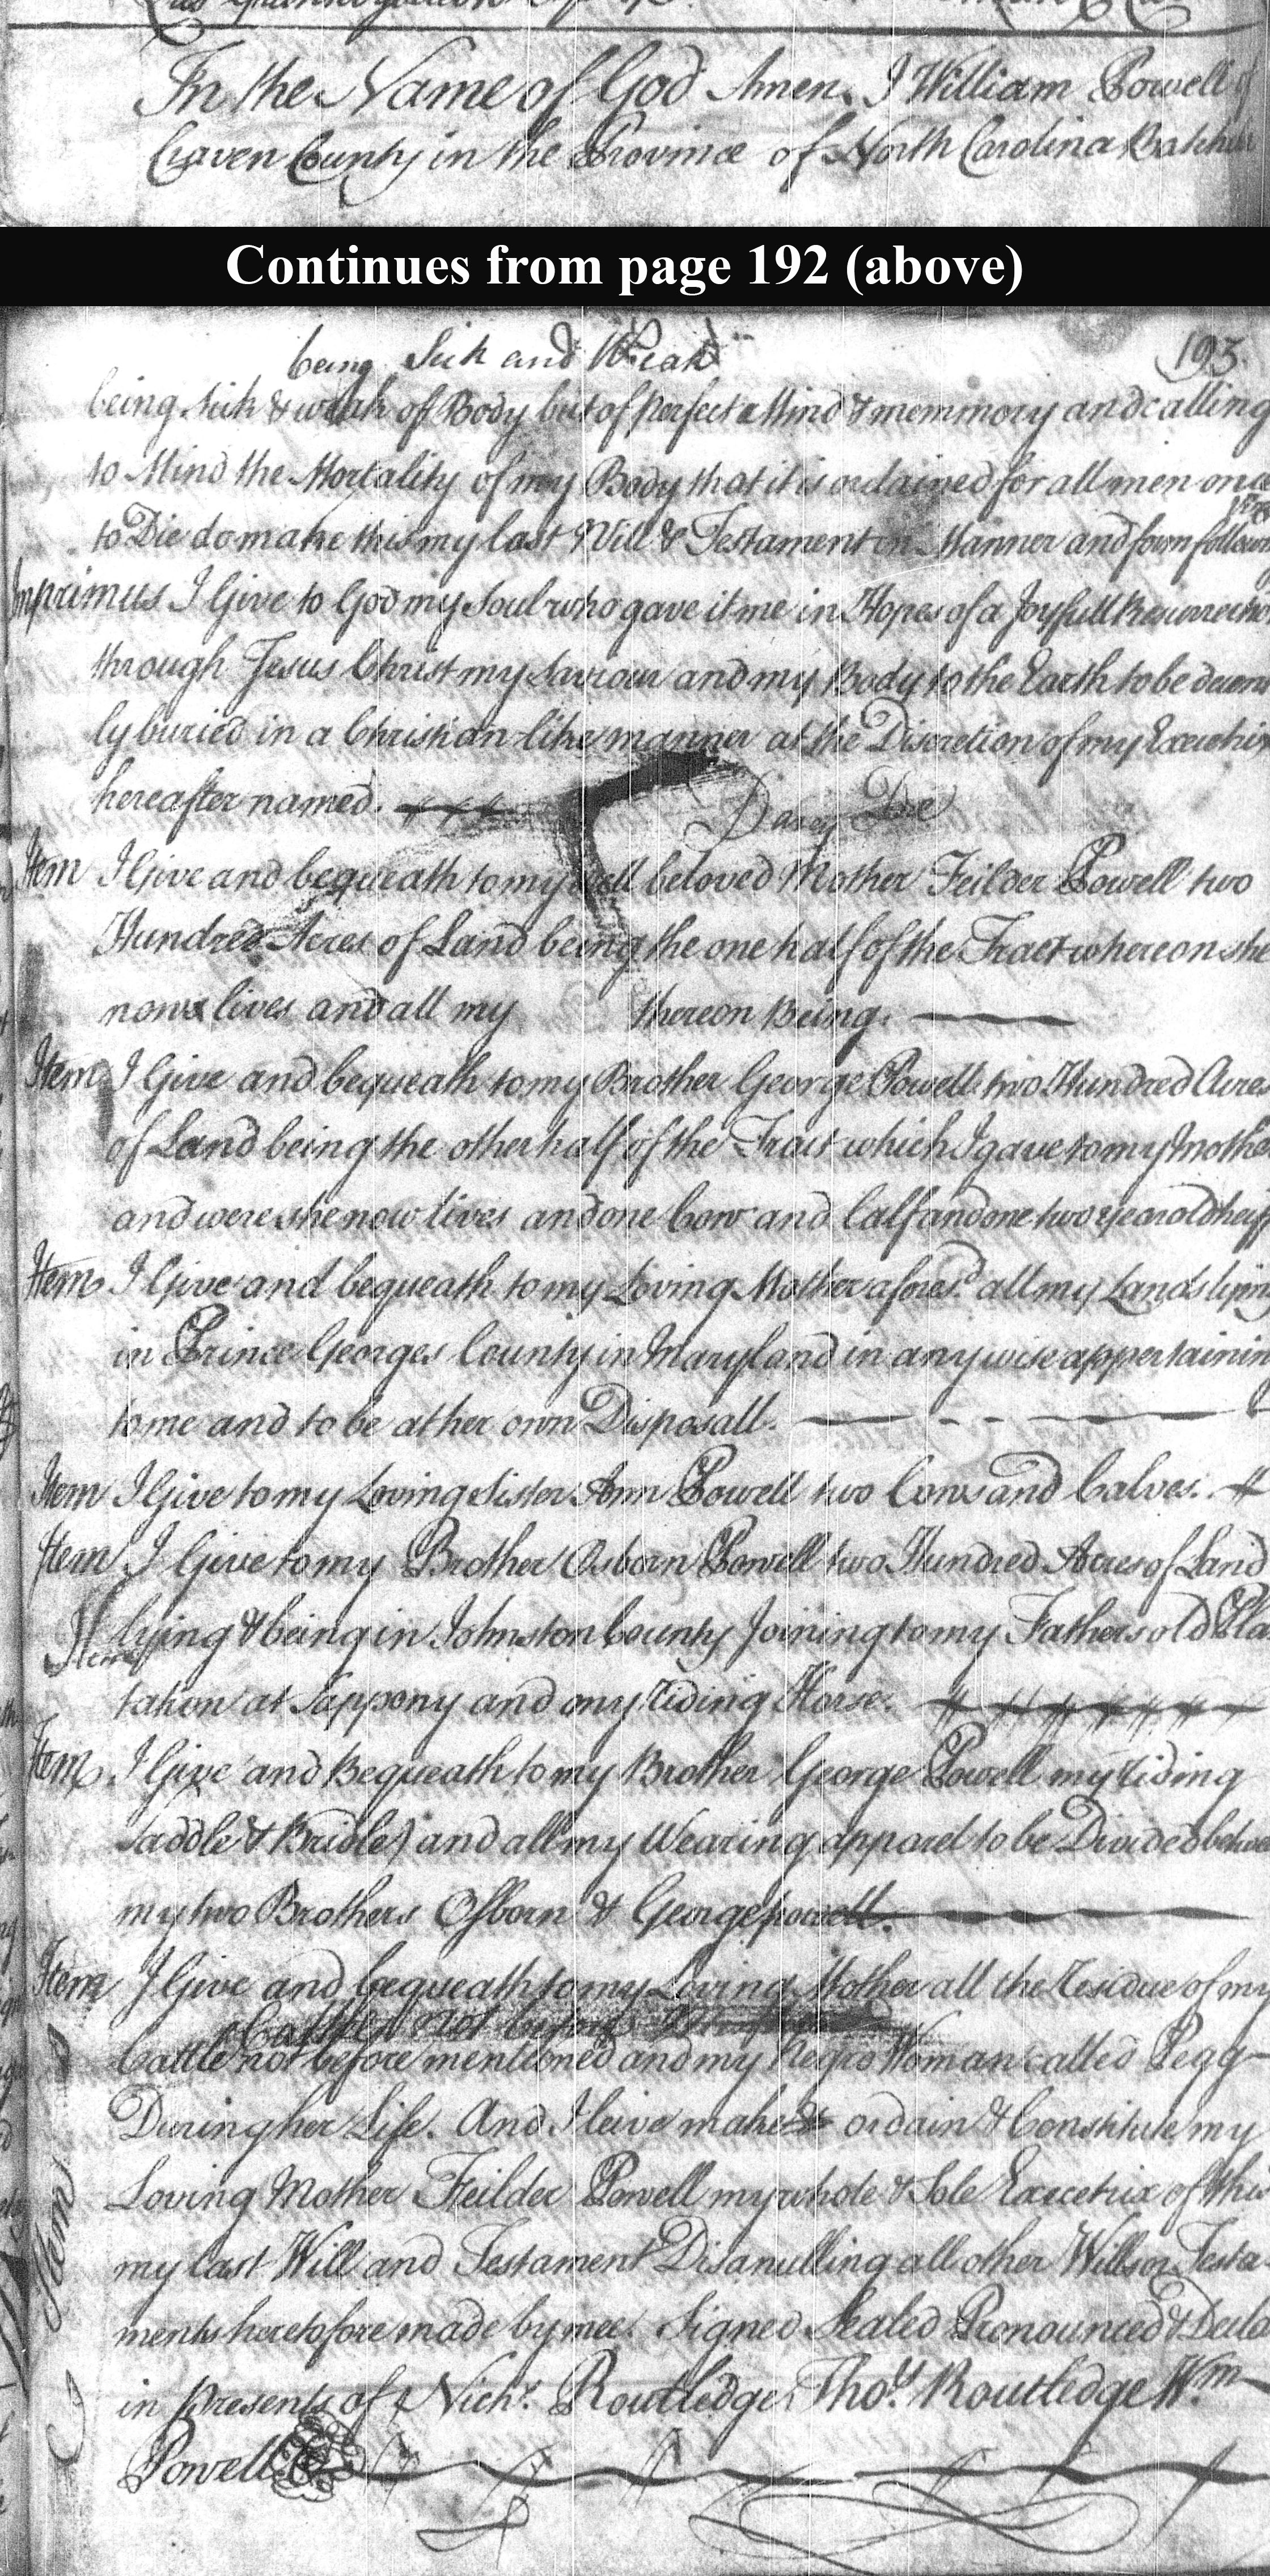 In the Name of God Amen. I William Powell of
Craven County in the Province of North Carolina
Continues from page 192 (above)
being Sick and Weak
193.
being sick & weak of Body but of perfect Mind & memmory and calling
to Mind the Mortality of my Body that it is ordained for all men once
to Die do make this my last Will & Testament in Manner and form
Imprimus I Give to God my Soul who gave it me in Hopes of a Joyfull Resurrection
through Jesus Christ my Saviour and my Body to the Earth to be decent
ly buried in a Christian like manner at the Discretion of my Executrix
hereafter named.
Item I Give and bequeath to my well beloved Mother Feilder Powell two
Hundred Acres of Land being the one half of the Tract whereon she
now lives and all my thereon Being.
Item I Give and bequeath to my Brother George Powell two Hundred Acres
of Land being the other half of the Tract which I gave to my Mother
and were she now lives and one Cow and Calf and one two year old heif
Item I Give and bequeath to my Loving Mother afores.d all my Lands lying
in Prince Georges County in Maryland in any wise appertaining
to me and to be at her own Disposall.
Item I Give to my Loving Sister Ann Powell two Cows and Calves.
Item I Give to my Brother Osborn Powell two Hundred Acres of Land
Item lying & being in Johnston County Joining to my Fathers old Pla
tation at Sappony and my riding Horse.
Item I Give and Bequeath to my Brother George Powell my riding
saddle & Bridle and all my Wearing apparel to be Divided betwe
my two Brothers Osborn & George powell.
Item I Give and bequeath to my Loving Mother all the residue of my
Cattle not before mentioned and my Negro Woman called Pegg
During her Life. And I leive make & ordain & Constitute my
Loving Mother Feilder Powell my whole & Sole Exectrix of this
my last Will and Testament Disanulling all other Wills or Testa
ments heretofore made by mee. Signed Sealed Pronounced & Decla
in presents of Nich.s Routledge, Tho.s Routledge W.m
Powell
Item